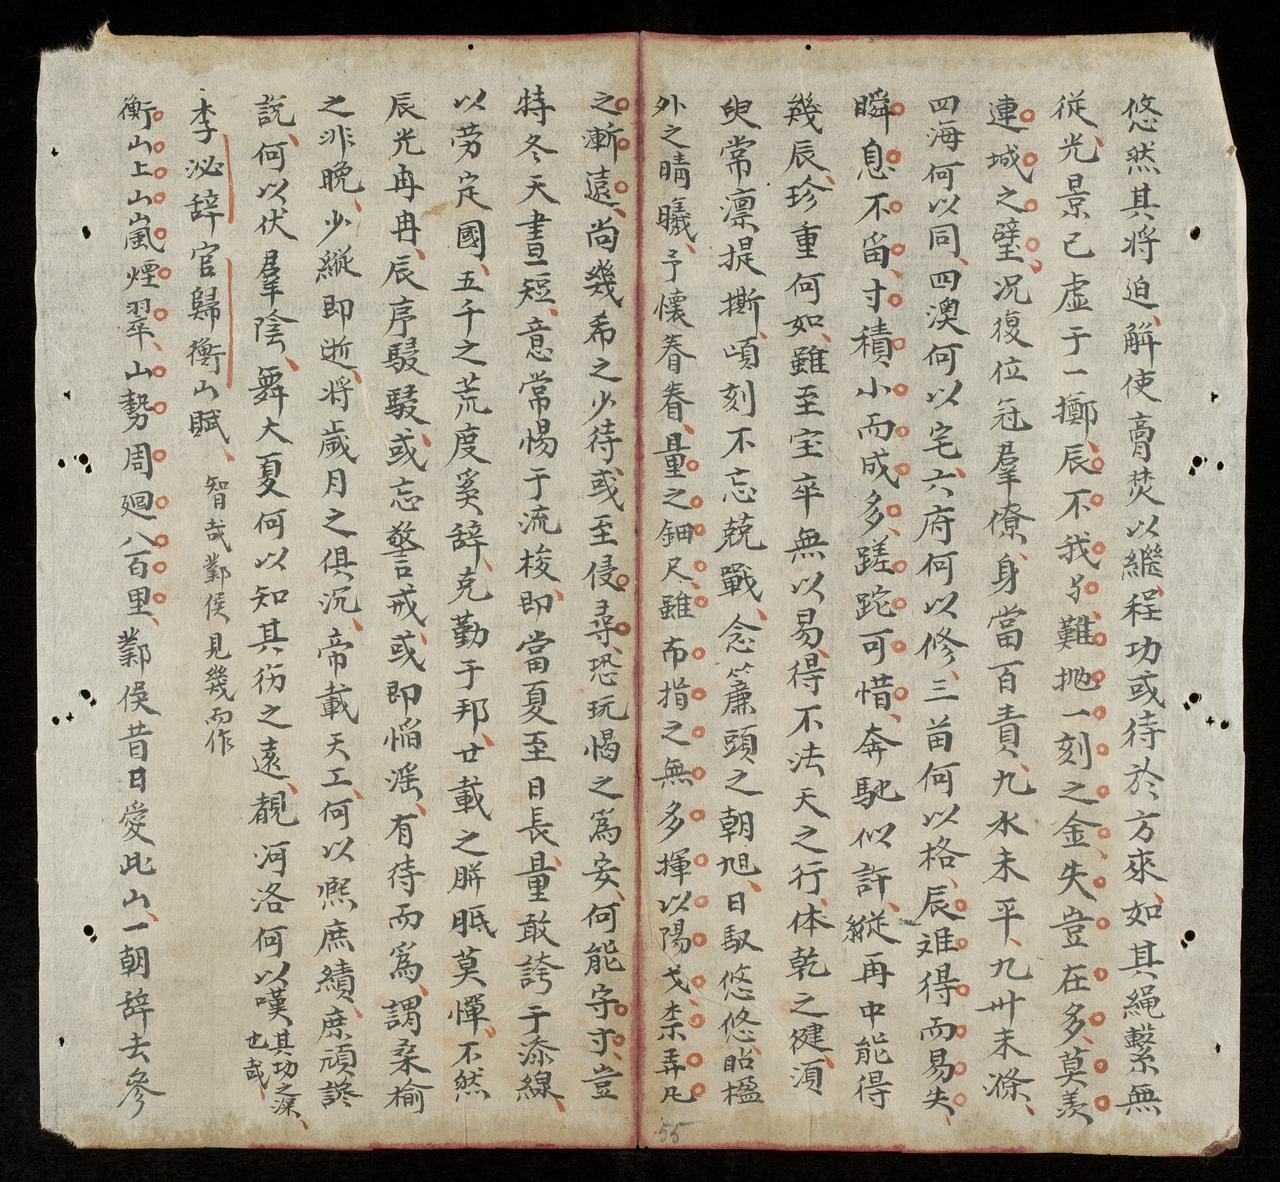 悠然其將迫、解使膏焚以繼、程功或待於方來、如其繩繫無
從、光景已虛于一擲、辰不我与、難抛一刻之金、失豈在多、莫羡
連城之璧、況復位冠羣僚、身當百責、九水未平、九卅未滌、
四海何以同、四澳何以宅、六府何以修、三苗何以格、辰难得而易失、
瞬息不留、寸積小而成多、蹉跎可惜、奔馳似許、縱再中能得
幾辰、珍重何如、雖至宝卒無以易、得不法天之行、体乾之健、須
臾常凛提撕、頃刻不忘兢戰、念簾頭之朝旭、日馭悠悠、眙楹
外之晴曦、予懷眷眷、量之鈿尺、雖布指之無多、揮以陽戈、柰弄凡
之漸遠、尚幾希之少待、或至侵尋、恐玩愒之爲安、何能守寸、豈
特冬天晝短、意常惕于流梭、即當夏至日長、量敢誇于添線、
以劳定國、五千之荒度奚辞、克勤于邦、廿載之胼胝莫憚、不然
辰光冉冉、辰序駸駸、或忘警戒、或即慆滛、有待而爲、謂桑榆
之非晚、少縱即逝、将歲月之俱沉、帝載天工、何以熈庶績、庶頑讒
說、何以伏羣陰、舞大夏何以知其彷之遠、覩河洛何以嘆其功之深、也哉、
李泌辞官歸衡山賦、智哉鄴侯見幾而作
衡山上山嵐煙翠、山勢周廻八百里、鄴侯昔日愛此山、一朝辞去參
55